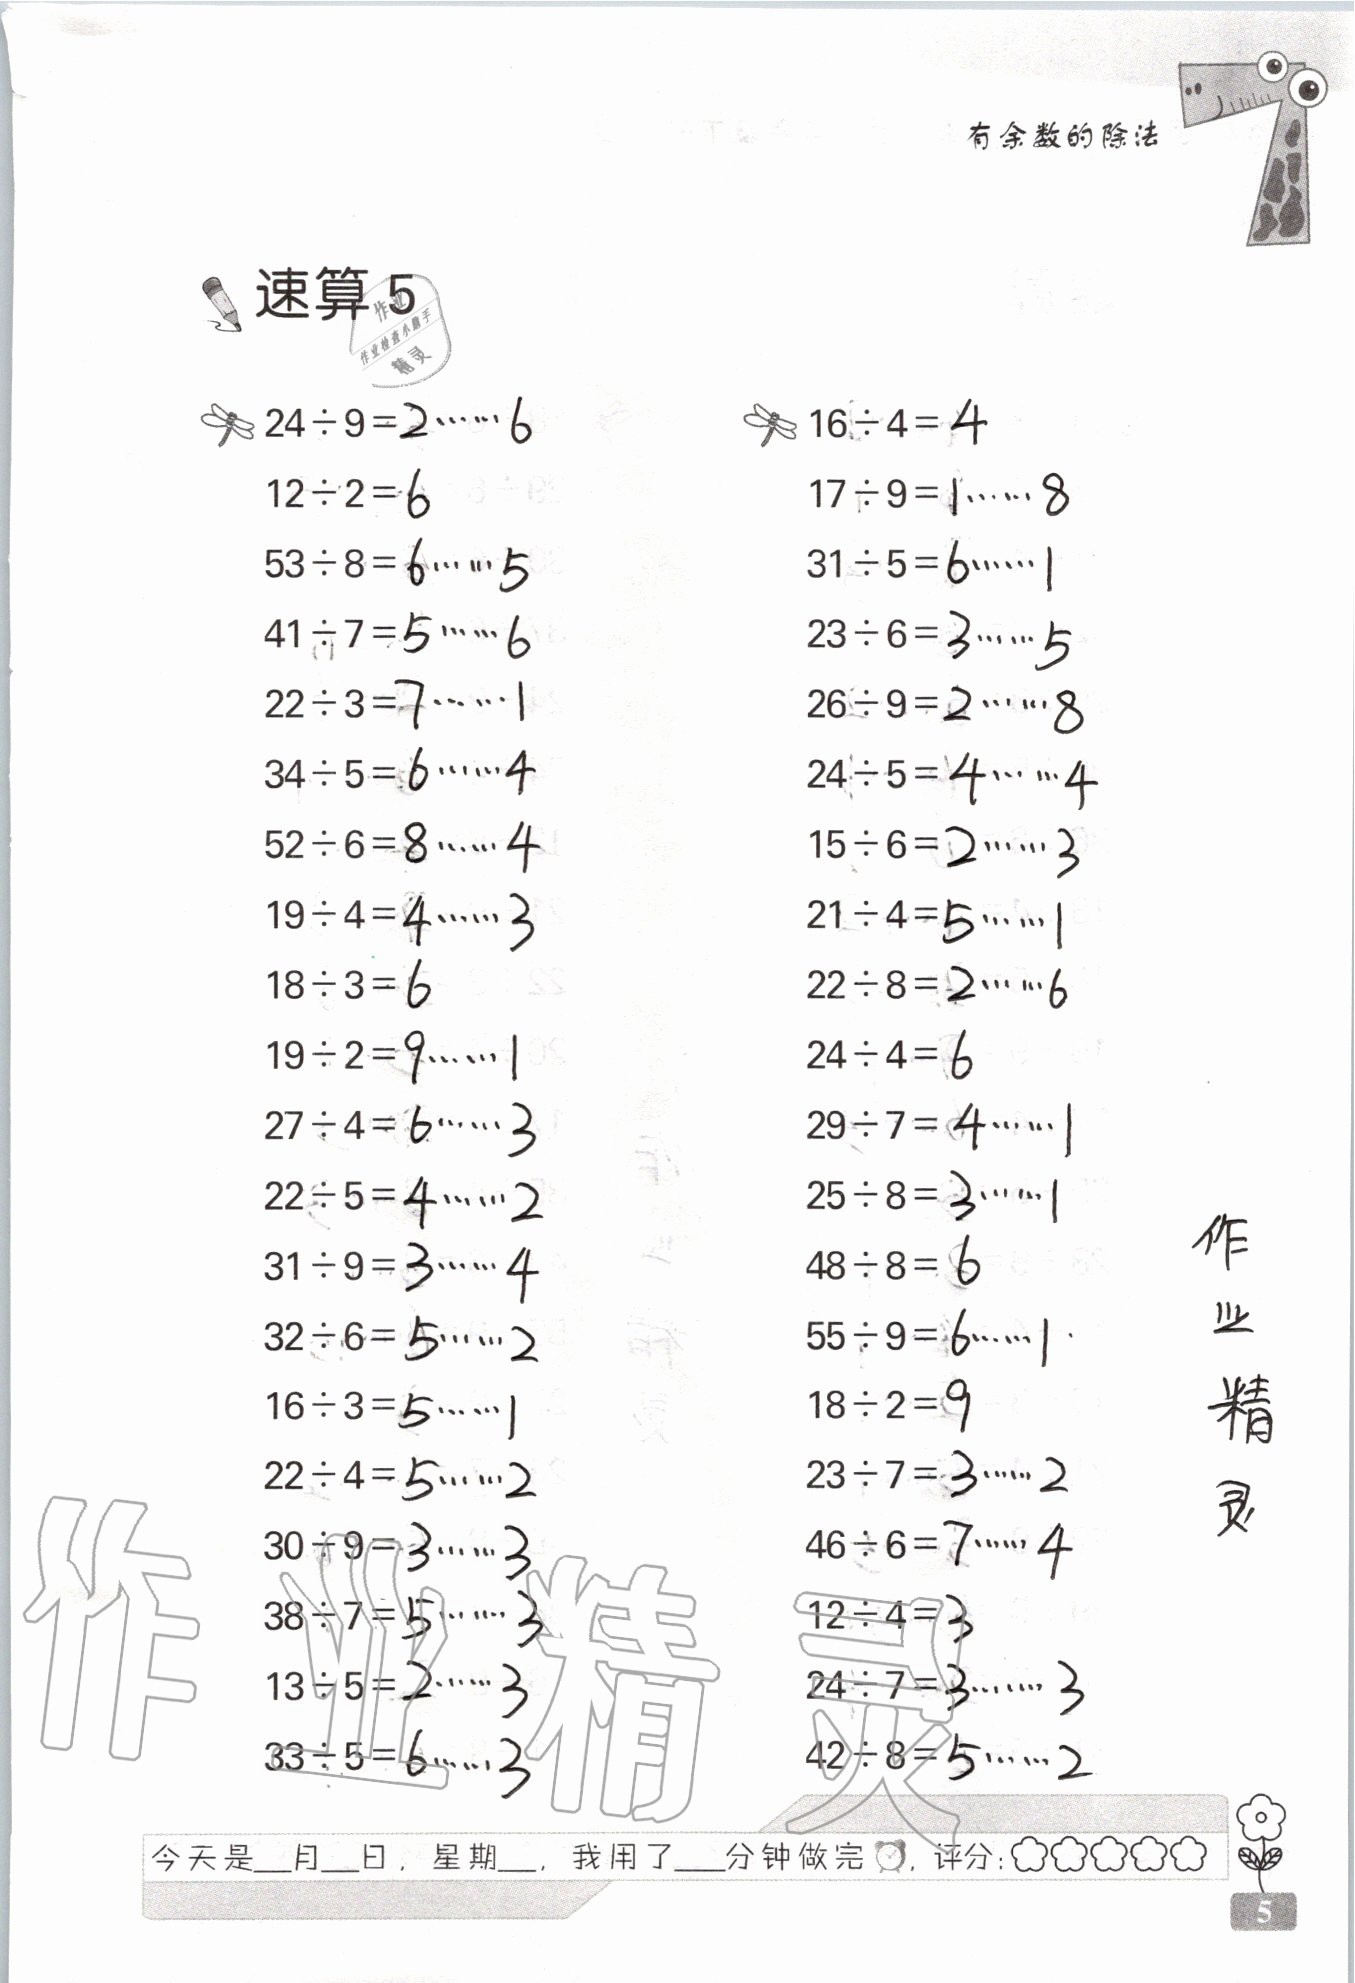 有余数的除法
速算 5
作业
作业检查小助手
精灵
24÷9=2……6
12÷2=6
53÷8=6……5
41÷7=5……6
22÷3=7……1
34÷5=6……4
52÷6=8……4
19÷4=4……3
18÷3=6
19÷2=9……1
27÷4=6……3
22÷5=4……2
31÷9=3……4
32÷6=5……2
16÷3=5……1
22÷4=5……2
30÷9=3……3
38÷7=5……3
13÷5=2……3
33÷5=6……3
16÷4=4
17÷9=1……8
31÷5=6……1
23÷6=3……5
26÷9=2……8
24÷5=4……4
15÷6=2……3
21÷4=5……1
22÷8=2……6
24÷4=6
29÷7=4……1
25÷8=3……1
48÷8=6
55÷9=6……1
18÷2=9
23÷7=3……2
46÷6=7……4
12÷4=3
24÷7=3……3
42÷8=5……2
作业精灵
作业精灵
今天是__月__日，星期__，我用了___分钟做完，评分：
5